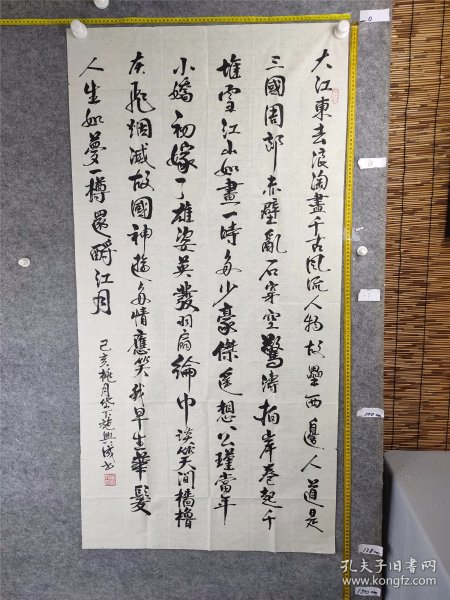 大江東去浪淘盡千古風流人物故壘西邊人道是
三國周郎赤壁亂石穿空驚濤拍岸卷起千
堆雪江山如畫一時多少豪傑遙想公瑾當年
小嬌初嫁了雄姿英發羽扇綸巾談笑間檣櫓
灰飛烟滅故國神遊多情應笑我早生華髮
人生如夢一樽還酹江月
己亥桃月岱下興成书
0
100cm
150cm
孔夫子旧书网
www.kongfz.com